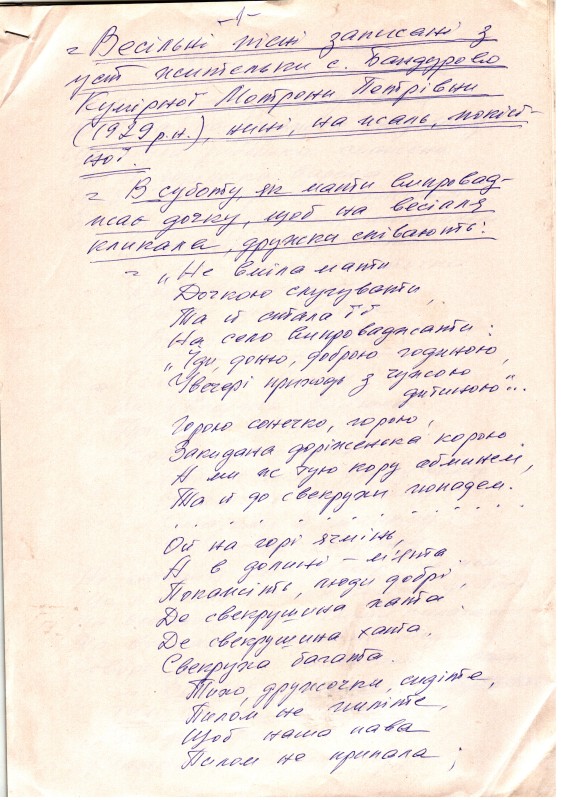 -1-
= Весільні пісні записані з
уст жительки с. Бандурово
Кумірної Мотрони Петрівни
(1929 р.н.), нині, на жаль, покій-
ної.
= В суботу, як мати випровад-
жає дочку, щоб на весілля
кликала, дружки співають:
= „Не вміла мати
Дочкою слугувати,
Та й стала її
На село випроваджати:
„Іди, доню, доброю годиною,
Увечері приходь з чужою
дитиною"...
Горою сонечко, горою,
Закидана доріженька корою.
А ми ж тую кору обминем,
Та й до свекрухи попадем.
. . . . . . . . . . .
Ой на горі ячмінь,
А в долині – м'ята.
Покажіть, люди добрі,
Де свекрушина хата.
Де свекрушина хата,
Свекруха багата.
Тихо, дружочки, сидіте,
Пилом не пиліте,
Щоб наша пава
Пилом не припала;